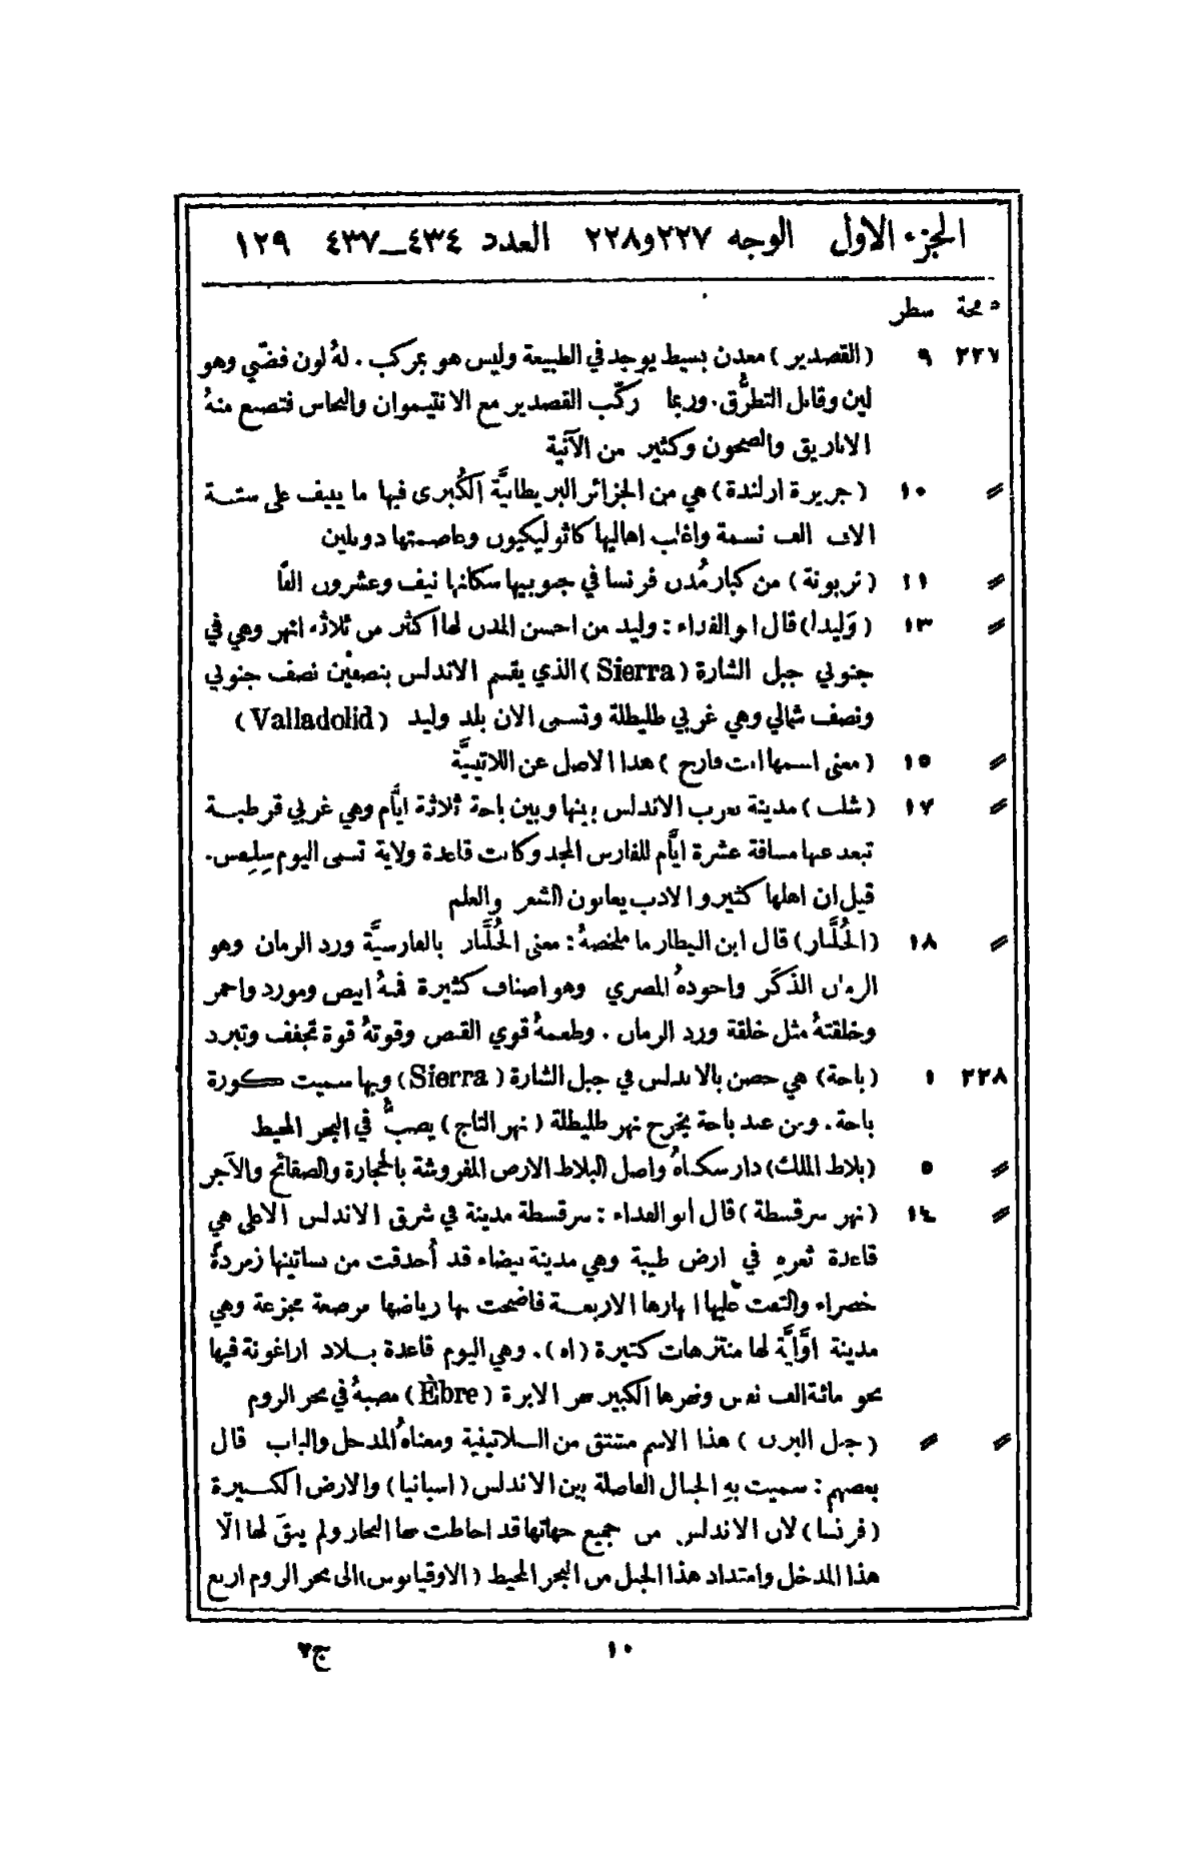 الجزء الاول الوجه ٢٢٧و٢٢٨ العدد ٤٣٤_٤٣٧ ١٢٩
صفحة سطر
٢٢٧ ٩ (القصدير) معدن بسيط يوجد في الطبيعة وليس هو بمركب. لهُ لون فضّي وهو
لين وقابل التطرُّق. وربما رُكّب القصدير مع الانتيموان والنحاس فتصنع منهُ
الاباريق والصحون وكثير من الآنية
〃 ١٠ (جزيرة ارلندة) هي من الجزائر البريطانيَّة الكُبرى فيها ما ينيف على ستة
الاف الف نسمة واغلب اهاليها كاثوليكيون وعاصمتها دوبلين
〃 ١١ (نربونة) من كبار مُدن فرنسا في جنوبيها سكانها نيف وعشرون الفًا
〃 ١٣ (وَليدا) قال ابو الفداء: وليد من احسن المدن لها اكثر من ثلاثة انهر وهي في
جنوبي جبل الشارة (Sierra) الذي يقسم الاندلس بنصفين نصف جنوبي
ونصف شمالي وهي غربي طليطلة وتسمى الان بلد وليد (Valladolid)
〃 ١٥ (معنى اسمها انت فارح) هذا الاصل عن اللاتينيَّة
〃 ١٧ (شلب) مدينة بغرب الاندلس بينها وبين باجة ثلاثة ايَّام وهي غربي قرطبة
تبعد عنها مسافة عشرة ايَّام للفارس المجد وكانت قاعدة ولاية تسمى اليوم سِلِفِس.
قيل ان اهلها كثيرو الادب يعانون الشعر والعلم
〃 ١٨ (الجُلَّنار) قال ابن البيطار ما ملخصهُ: معنى الجُلَّنار بالفارسيَّة ورد الرمان وهو
الرمان الذكَر واجودهُ المصري وهو اصناف كثيرة فمنهُ ابيض ومورد واحمر
وخلقتهُ مثل خلقة ورد الرمان. وطعمهُ قوي القبض وقوتهُ قوة تجفف وتبرد
٢٢٨ ١ (باجة) هي حصن بالاندلس في جبل الشارة (Sierra) وبها سميت كورة
باجة. ومن عند باجة يخرج نهر طليطلة (نهر التاج) يصبُّ في البحر المحيط
〃 ٥ (بلاط الملك) دار سكناهُ واصل البلاط الارض المفروشة بالحجارة والصفائح والآجر
〃 ١٤ (نهر سرقسطة) قال ابو الفداء: سرقسطة مدينة في شرق الاندلس الاعلى هي
قاعدة ثغرهِ في ارض طيبة وهي مدينة بيضاء قد أُحدقت من بساتينها زمردةٌ
خضراء والتفت عليها انهارها الاربعة فاضحت بها رياضها مرصعة مجزعة وهي
مدينة اوَّليَّة لها منتزهات كثيرة (اه). وهي اليوم قاعدة بلاد اراغونة فيها
نحو مائة الف نفس ونهرها الكبير نهر الابرة (Èbre) مصبهُ في بحر الروم
〃 〃 (جبل البرت) هذا الاسم مشتق من اللاتينية ومعناهُ المدخل والباب قال
بعضهم: سميت بهِ الجبال الفاصلة بين الاندلس (اسبانيا) والارض الكبيرة
(فرنسا) لان الاندلس من جميع جهاتها قد احاطت بها البحار ولم يبقَ لها الّا
هذا المدخل وامتداد هذا الجبل من البحر المحيط (الاوقيانوس) الى بحر الروم اربع
١٠ ج٢